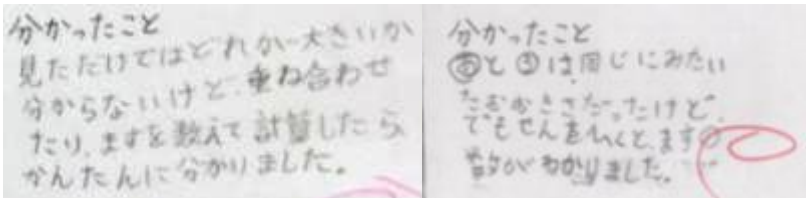 分かったこと
見ただけではどれが大きいか
分からないけど、重ね合わせ
たり、ますを数えて計算したら、
かんたんに分かりました。
分かったこと
あといは、同じにみたい
けど、
でもせんをひくと、ますの
数がわかりました。